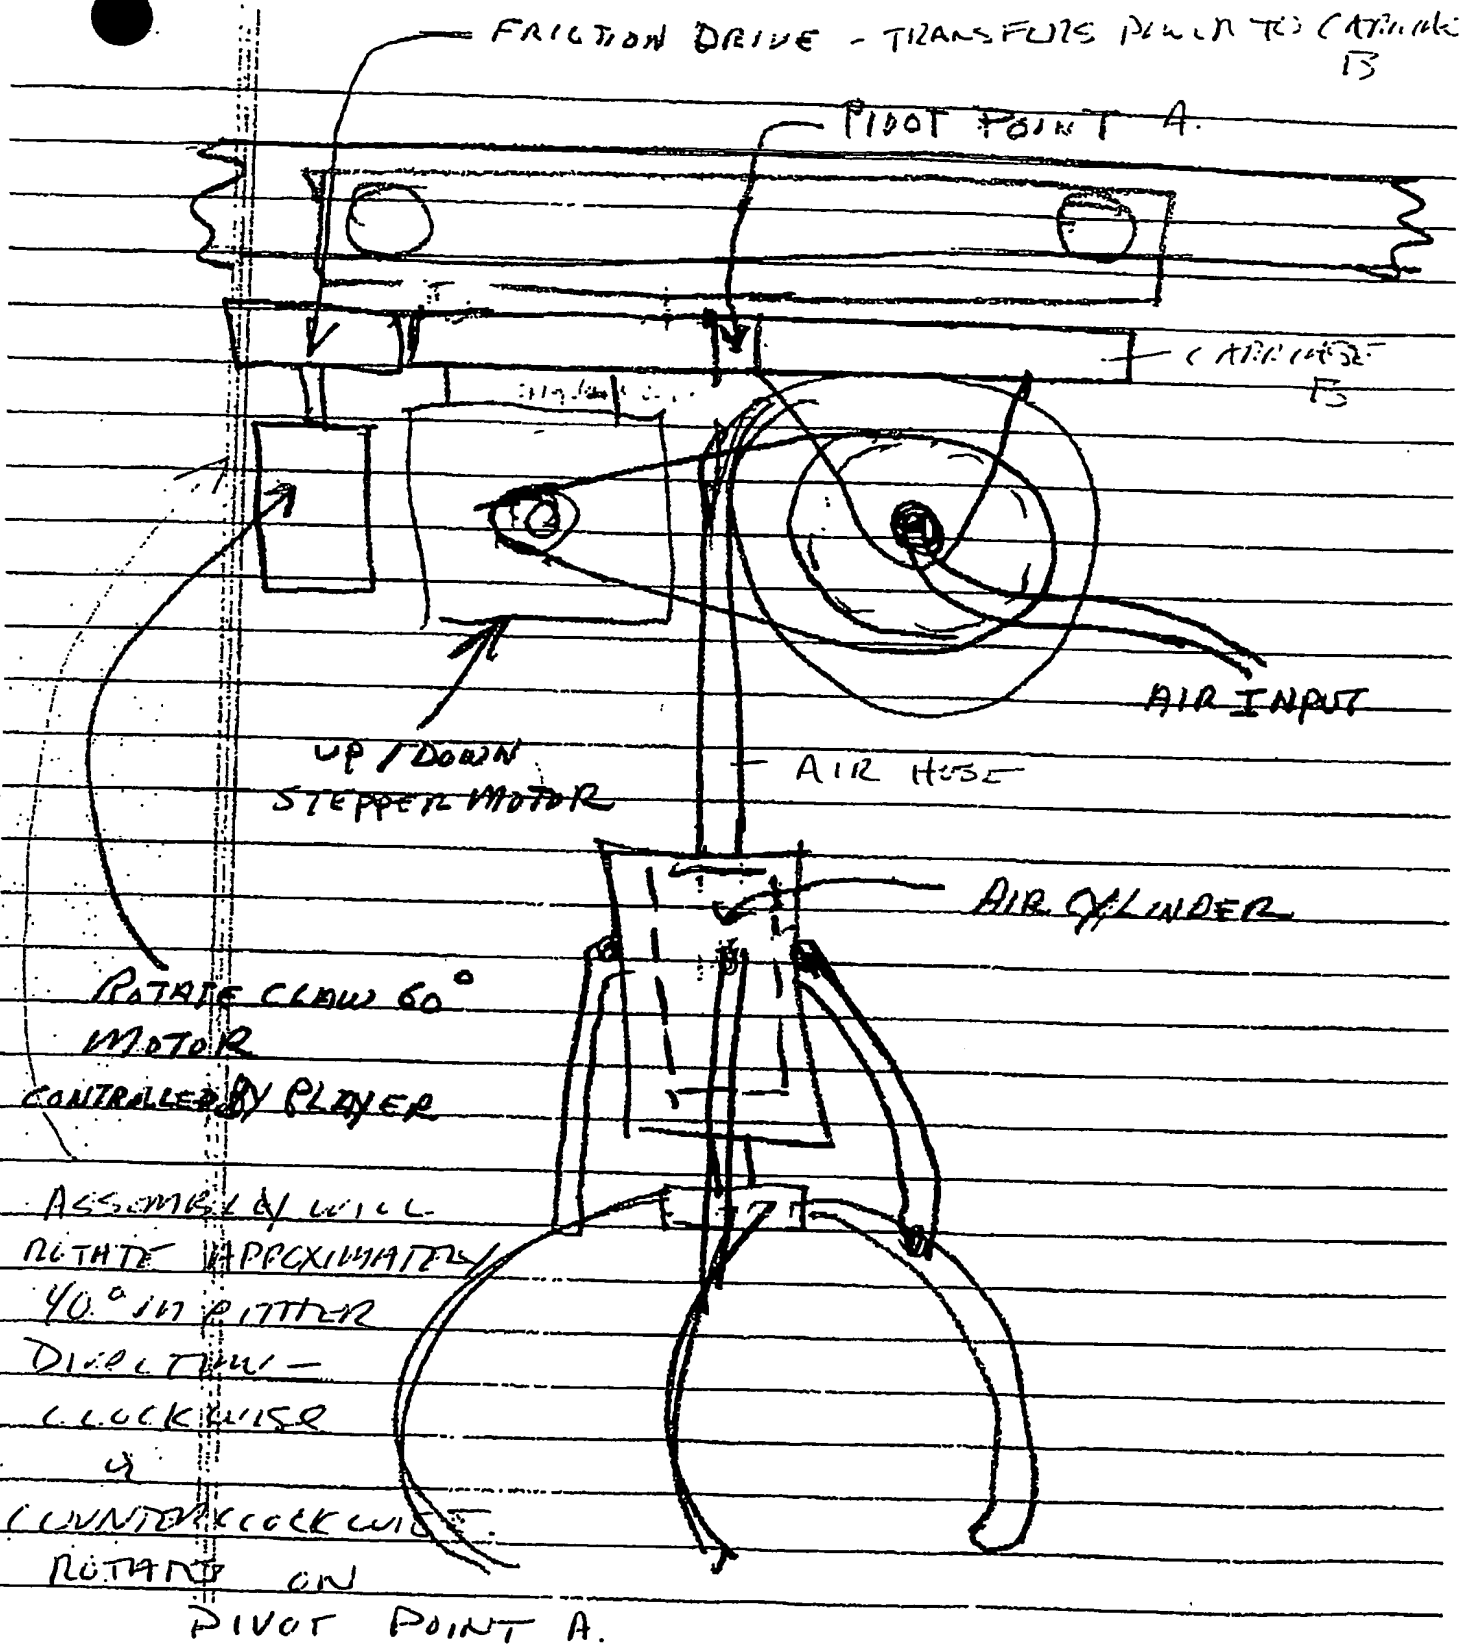 FRICTION DRIVE - TRANSFERS POWER TO CARRIAGE
B
PIVOT POINT A.
CARRIAGE
B
AIR INPUT
UP / DOWN
STEPPER MOTOR
AIR HOSE
AIR CYLINDER
ROTATE CLAW 60°
MOTOR
CONTROLLED BY PLAYER
ASSEMBLY WILL
ROTATE APPOXIMATELY
40° IN EITHER
DIRECTION -
CLOCKWISE
or
COUNTER CLOCKWISE.
ON
PIVOT POINT A.